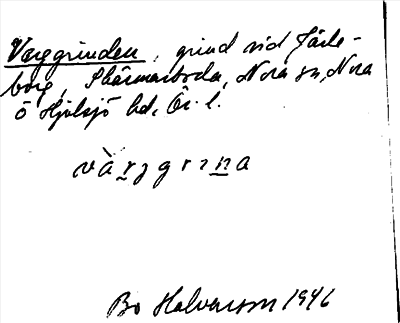 Varggrinden, grind vid Järle-
borg, Skärmarboda, Nora sn, Nora
o Hjulsjö hd, Ör. l.
Bo Halvarson 1946